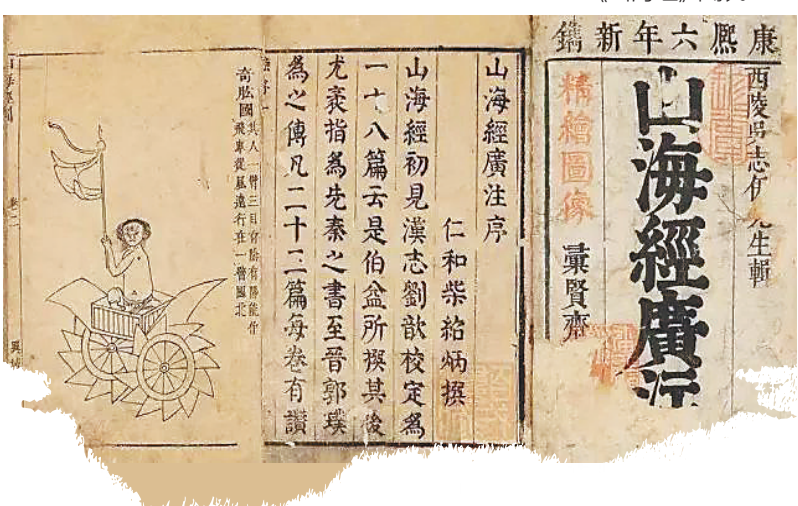 康熙六年新鐫
西陵吳志伊先生輯
山海經廣注
精繪圖像
彙賢齋
山海經廣注序
仁和柴紹炳撰
山海經初見漢志劉歆校定為
一十八篇云是伯益所撰其後
尤袤指為先秦之書至晉郭璞
為之傳凡二十三篇每卷有讚
奇肱國
其人一臂三目有陰有陽能作
飛車從風遠行在一臂國北
卷二